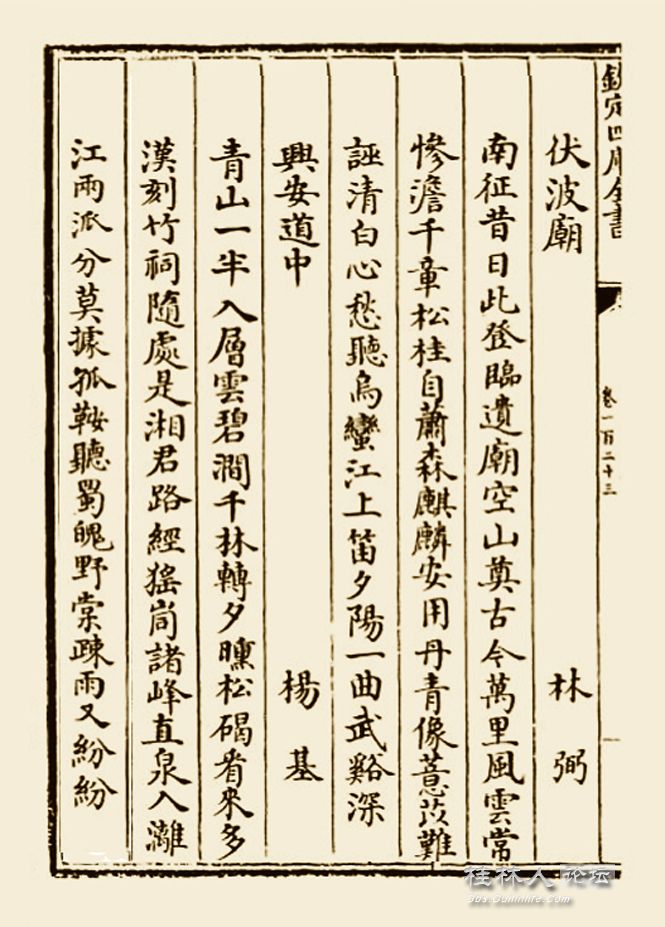 欽定四庫全書
卷一百二十三
伏波廟
林弼
南征昔日此登臨遺廟空山奠古今萬里風雲常
慘澹千章松桂自蕭森麒麟安用丹青像薏苡難
誣清白心愁聽烏蠻江上笛夕陽一曲武谿深
興安道中
楊基
青山一半入層雲碧澗千林轉夕曛松碣看來多
漢刻竹祠隨處是湘君路經猺峝諸峰直泉入灕
江兩派分莫據孤鞍聽蜀魄野棠疎雨又紛紛
桂林人论坛